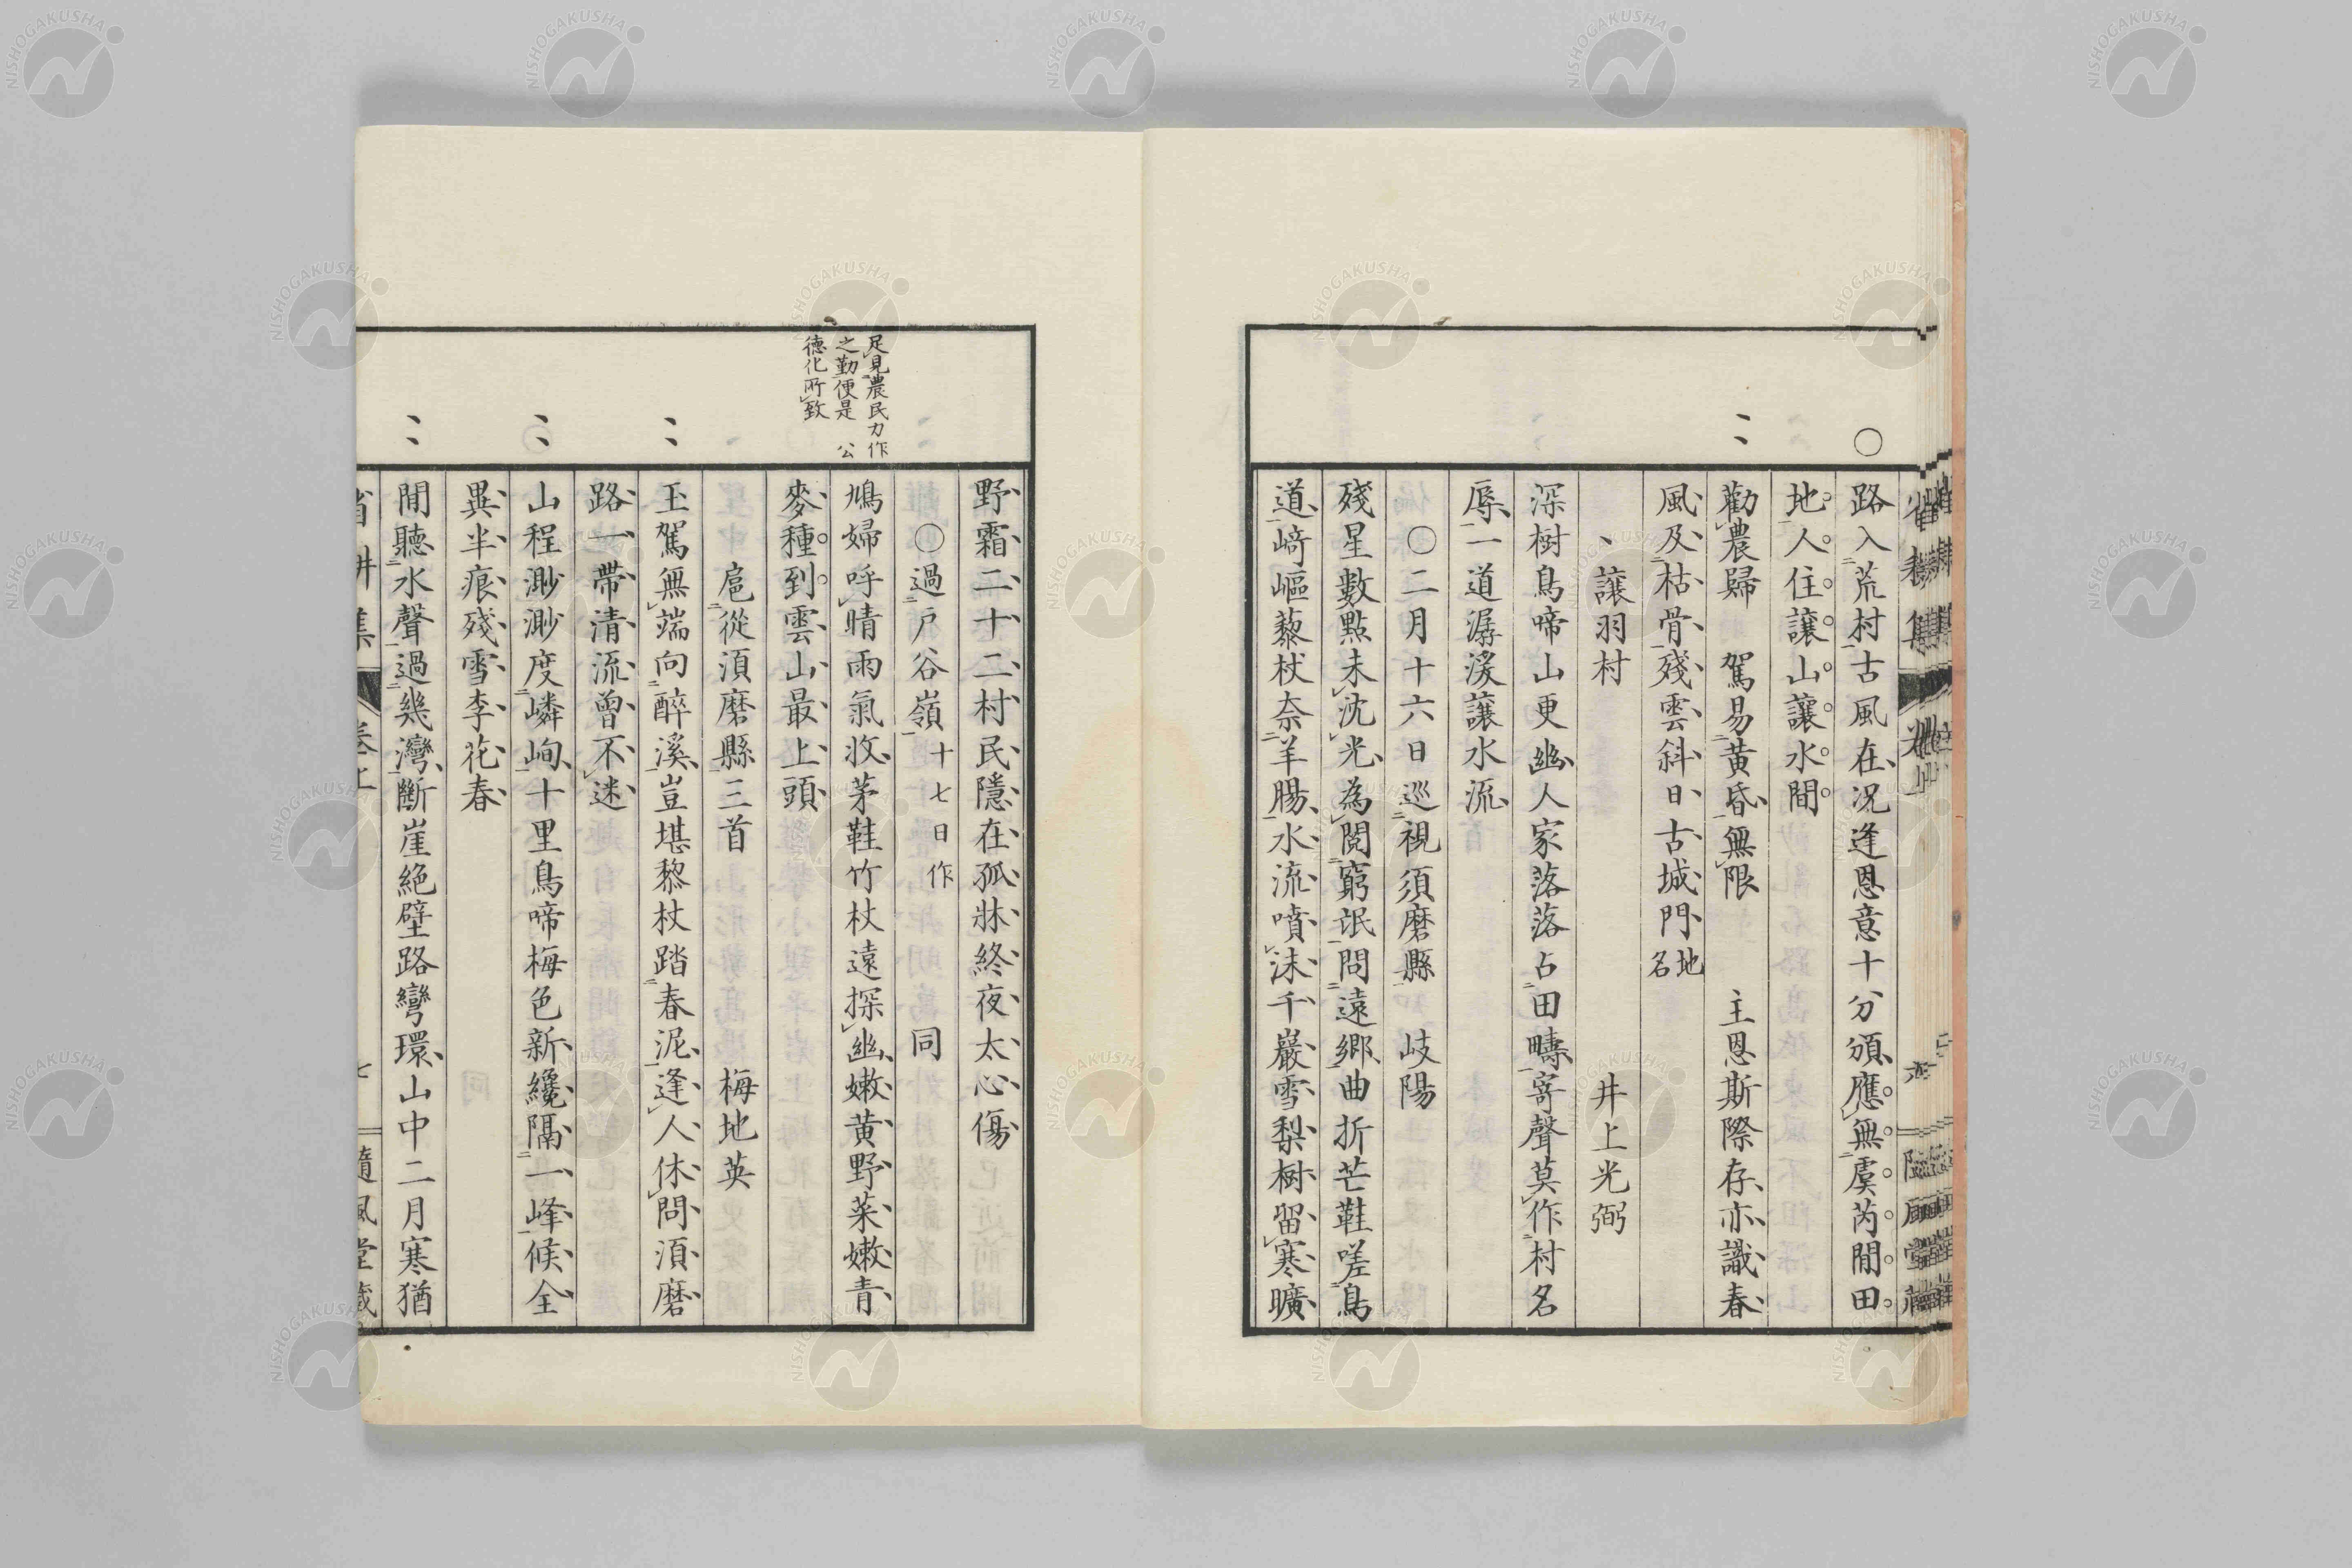 路入荒村古風在況逢恩意十分頒應無虞芮閒田
地人住讓山讓水間
勸農歸 駕易黃昏無限 主恩斯際存亦識春
風及枯骨殘雲斜日古城門地名
讓羽村 井上光弼
深樹鳥啼山更幽人家落落占田疇寄聲莫作村名
辱一道潺湲讓水流
○二月十六日巡視須磨縣 岐陽
殘星數點未沈光為閱窮氓問遠鄉曲折芒鞋嗟鳥
道﨑嶇藜杖奈羊腸水流噴沫千巖雪梨樹留寒曠
野霜二十二村民隱在孤牀終夜太心傷
足見農民力作
之勤便是 公
德化所致
○過戶谷嶺十七日作 同
鳩婦呼晴雨氣收茅鞋竹杖遠探幽嫩黃野菜嫩青
麥種到雲山最上頭
扈從須磨縣三首 梅地英
玉駕無端向醉溪豈堪黎杖踏春泥逢人休問須磨
路一帶清流曾不迷
山程渺渺度嶙峋十里鳥啼梅色新纔隔一峰候全
異半痕殘雪李花春
閒聽水聲過幾灣斷崖絕壁路彎環山中二月寒猶
省耕集 卷上 七 隨風堂藏
NISHOGAKUSHA